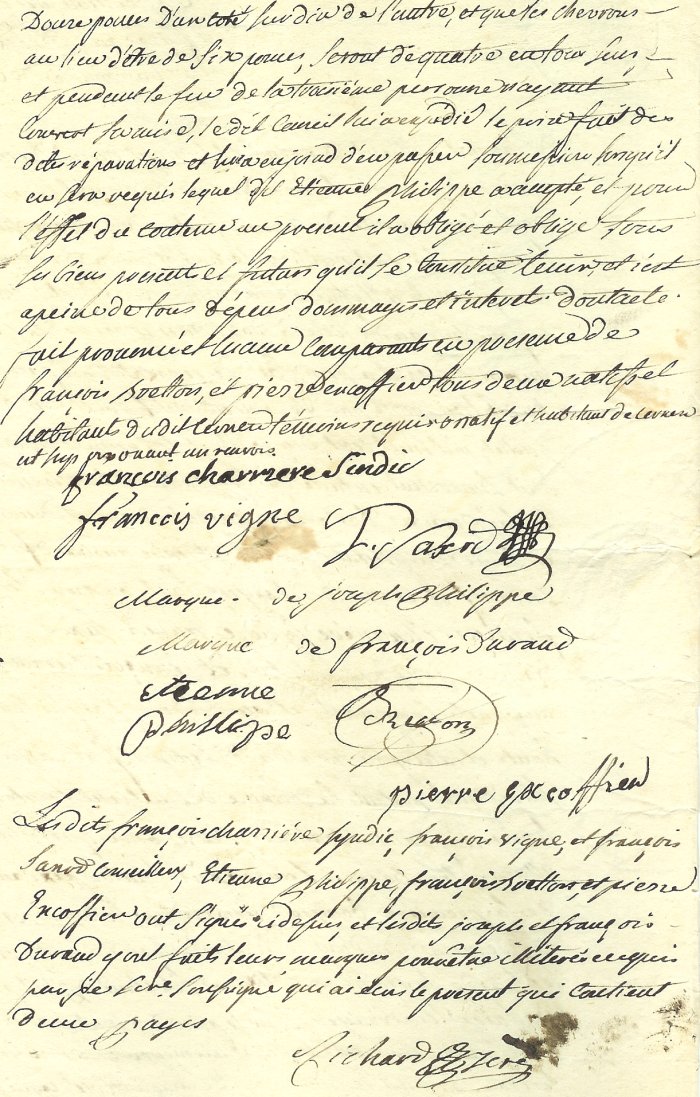 Douze pouces D'un coté sur dix de l'autre, et que les chevrons
au lieu d'être de six pouces, seront de quatre en tous sens,
et pendent le feu de la troisième personne n'ayant
Couvert Sa mise, le dit Conseil lui a expedié le prix fait des
dites réparations et lui a enjoind d'en passer Soumession lorsqu'il
en sera requis lequel dit Etienne Philippe a accepté, et pour
l'Effet du contenu au présent il a obligé et oblige tous
ses biens present et futurs qu'il se Constitue tenir, et c'est
a peine de tous dépens dommages et intérets. Dont acte
fait prononcé et lu aux Comparants en presence de
françois Bretton, et pierre Encoffier tous deux natifs et
habitants dudit Cernex témoins requis natif et habitant de Cernex
françois charriere Sindic
françois vigne
f. Saxod
Marque de joseph Philippe
Marque de françois Durand
etienne
philippe
pierre Excoffier
Lesdits françois charriére syndic, françois vigne, et françois
Saxod Conseillers, Etienne Philippe, françois Bretton, et pierre
Excoffier ont Signés cidesus, et lesdits joseph et françois
Durand y ont faits leurs marques pour être illiterés ce requis
par je Scre. Soussigné qui ai ecris le present qui Contient
deux pages
Richard Scre